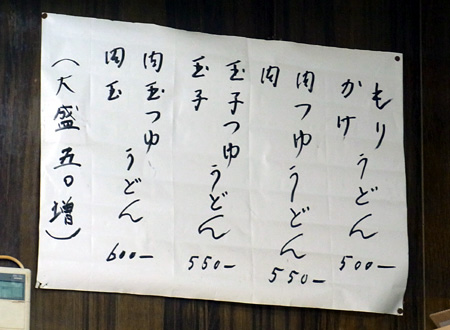 もりうどん
かけ 500ー
肉つゆうどん
肉 550ー
玉子つゆうどん
玉子 550ー
肉玉つゆうどん
肉玉 600ー
(大盛五〇増)